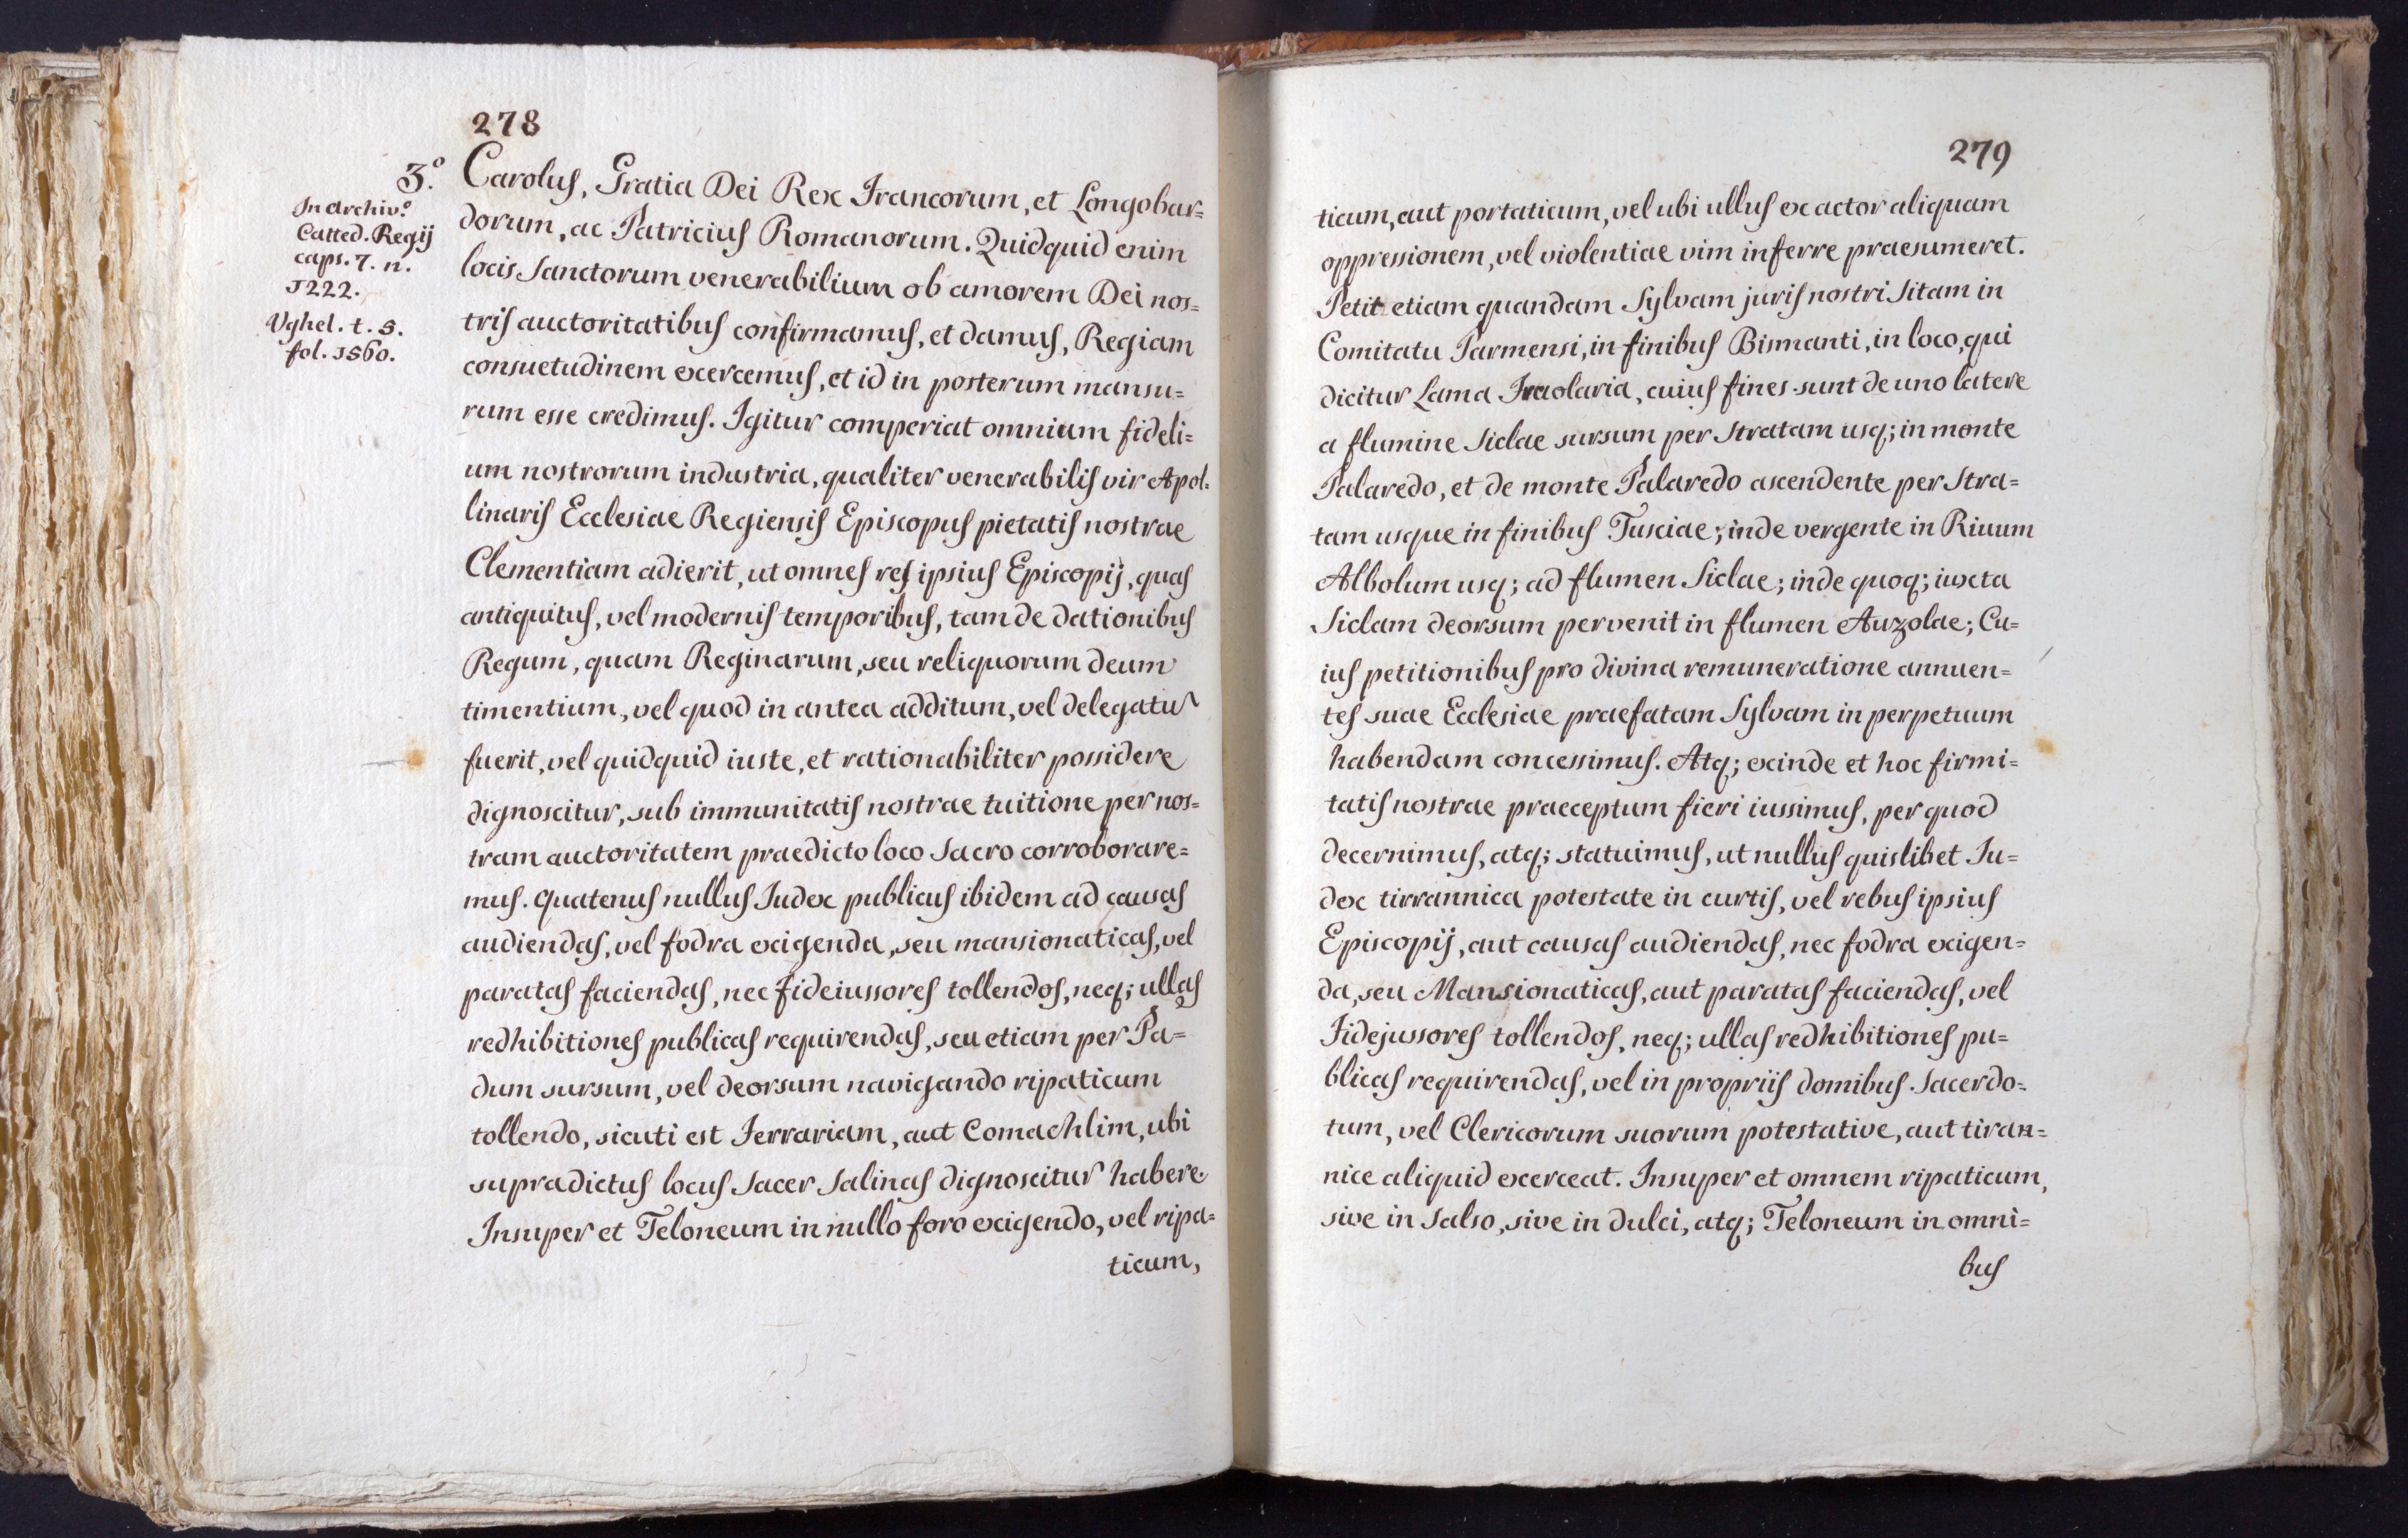 278
3.º
In archiv.º
Catted. Regij
caps. 7. n.
1222.
Vghel. t. 5.
fol. 1560.
Carolus, Gratia Dei Rex Francorum, et Longobar=
dorum, ac Patricius Romanorum. Quidquid enim
locis Sanctorum venerabilium ob amorem Dei nos=
tris auctoritatibus confirmamus, et damus, Regiam
consuetudinem exercemus, et id in posterum mansu=
rum esse credimus. Igitur comperiat omnium fideli=
um nostrorum industria, qualiter venerabilis vir Apol=
linaris Ecclesiae Regiensis Episcopus pietatis nostrae
Clementiam adierit, ut omnes res ipsius Episcopij, quas
antiquitus, vel modernis temporibus, tam de dationibus
Regum, quam Reginarum, seu reliquorum deum
timentium, vel quod in antea additum, vel delegatu
fuerit, vel quidquid iuste, et rationabiliter possidere
dignoscitur, sub immunitatis nostrae tuitione per nos=
tram auctoritatem praedicto loco Sacro corroborare=
mus. Quatenus nullus Iudex publicus ibidem ad causas
audiendas, vel fodra exigenda, seu mansionaticas, vel
paratas faciendas, nec fideiussores tollendos, neq; ullas
redhibitiones publicas requirendas, seu etiam per Pa=
dum sursum, vel deorsum navigando ripaticum
tollendo, sicuti est Ferrariam, aut Comachlim, ubi
supradictus locus Sacer Salinas dignoscitur habere
Insuper et Teloneum in nullo foro exigendo, vel ripa=
ticum,
279
ticum, aut portaticum, vel ubi ullus exactor aliquam
oppressionem, vel violentiae vim inferre praesumeret.
Petit etiam quandam Sylvam juris nostri Sitam in
Comitatu Parmensi, in finibus Bismanti, in loco, qui
dicitur Lama Fraolaria, cuius fines sunt de uno latere
a flumine Siclae sursum per Stratam usq; in monte
Palaredo, et de monte Palaredo ascendente per Stra=
tam usque in finibus Tusciae; inde vergente in Riuum
Albolum usq; ad flumen Siclae; inde quoq; iuxta
Siclam deorsum pervenit in flumen Auzolae; Cu=
ius petitionibus pro divina remuneratione annuen=
tes suae Ecclesiae praefatam Sylvam in perpetuum
habendam concessimus. Atq; exinde et hoc firmi=
tatis nostrae praeceptum fieri iussimus, per quod
decernimus, atq; statuimus, ut nullus quislibet Iu=
dex tirrannica potestate in curtis, vel rebus ipsius
Episcopij, aut causas audiendas, nec fodra exigen=
da, seu Mansionaticas, aut paratas faciendas, vel
Fidejussores tollendos, neq; ullas redhibitiones pu=
blicas requirendas, vel in propriis domibus Sacerdo=
tum, vel Clericorum suorum potestative, aut tiran=
nice aliquid exerceat. Insuper et omnem ripaticum,
sive in Salso, sive in dulci, atq; Teloneum in omni=
bus